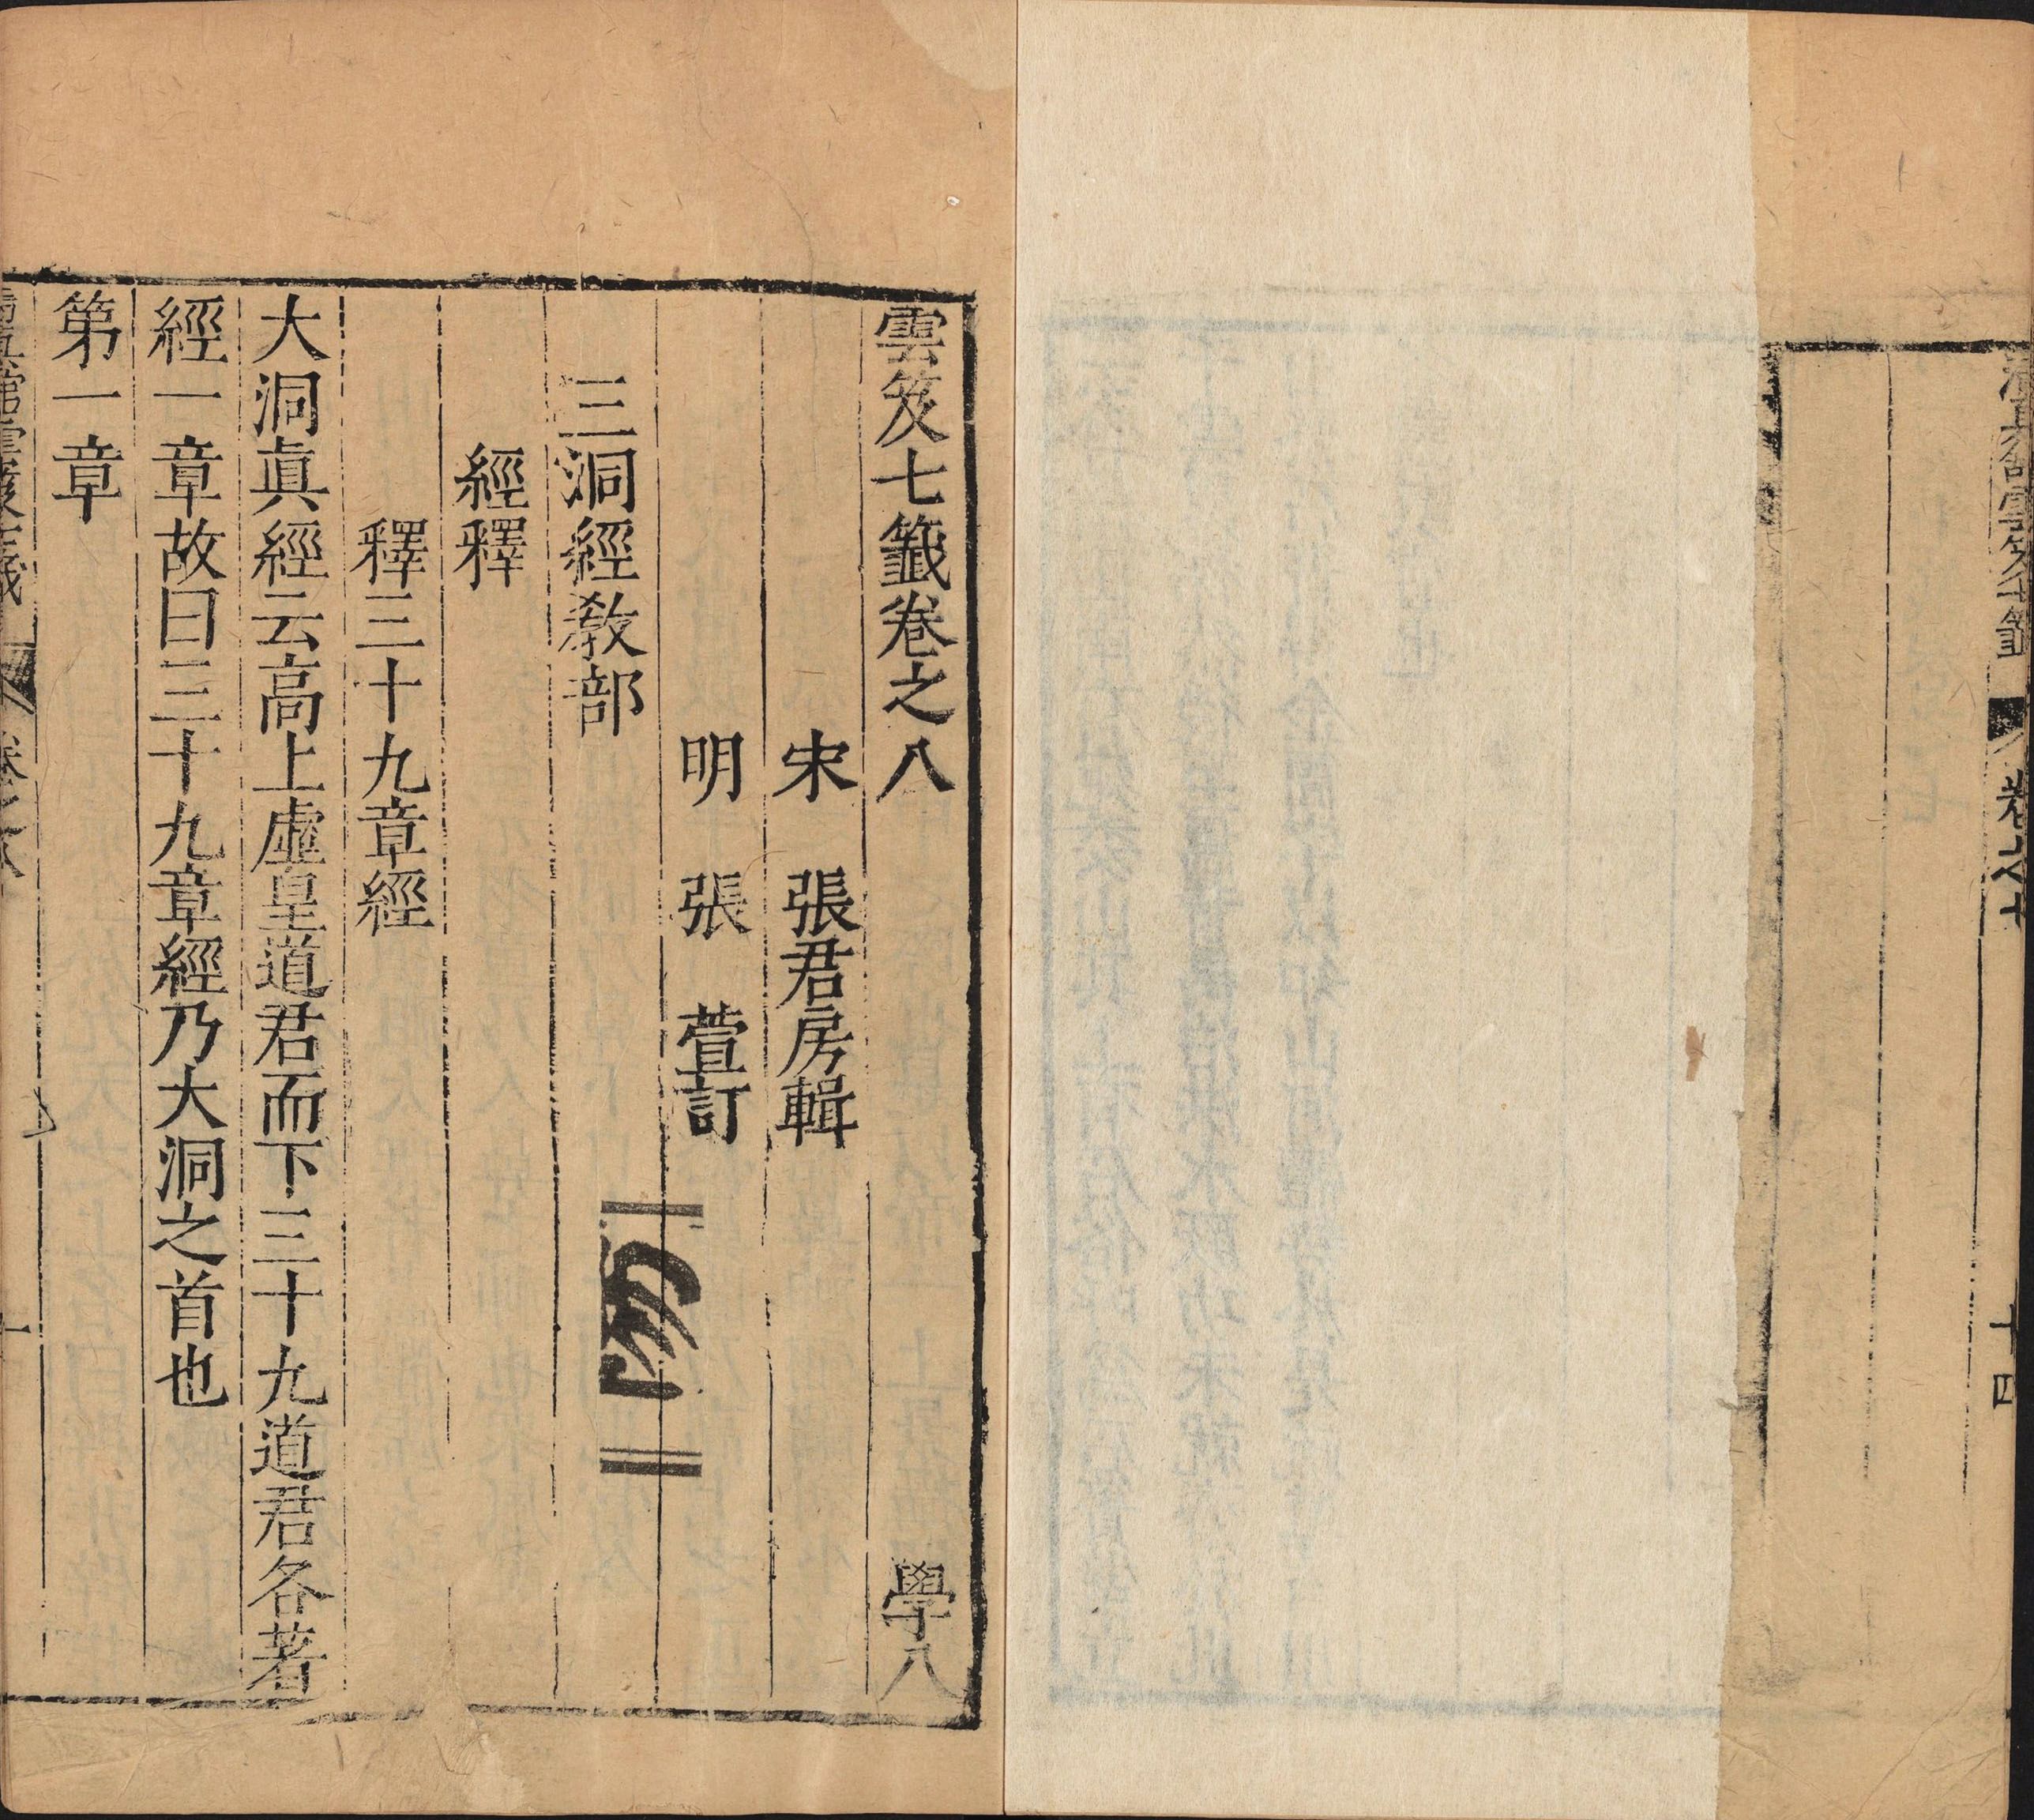 清真館雲笈七籤 卷之七 十四
雲笈七籤卷之八 學八
宋 張君房輯
明 張 萱訂
三洞經敎部
經釋
釋三十九章經
大洞眞經云高上虛皇道君而下三十九道君各著
經一章故曰三十九章經乃大洞之首也
第一章